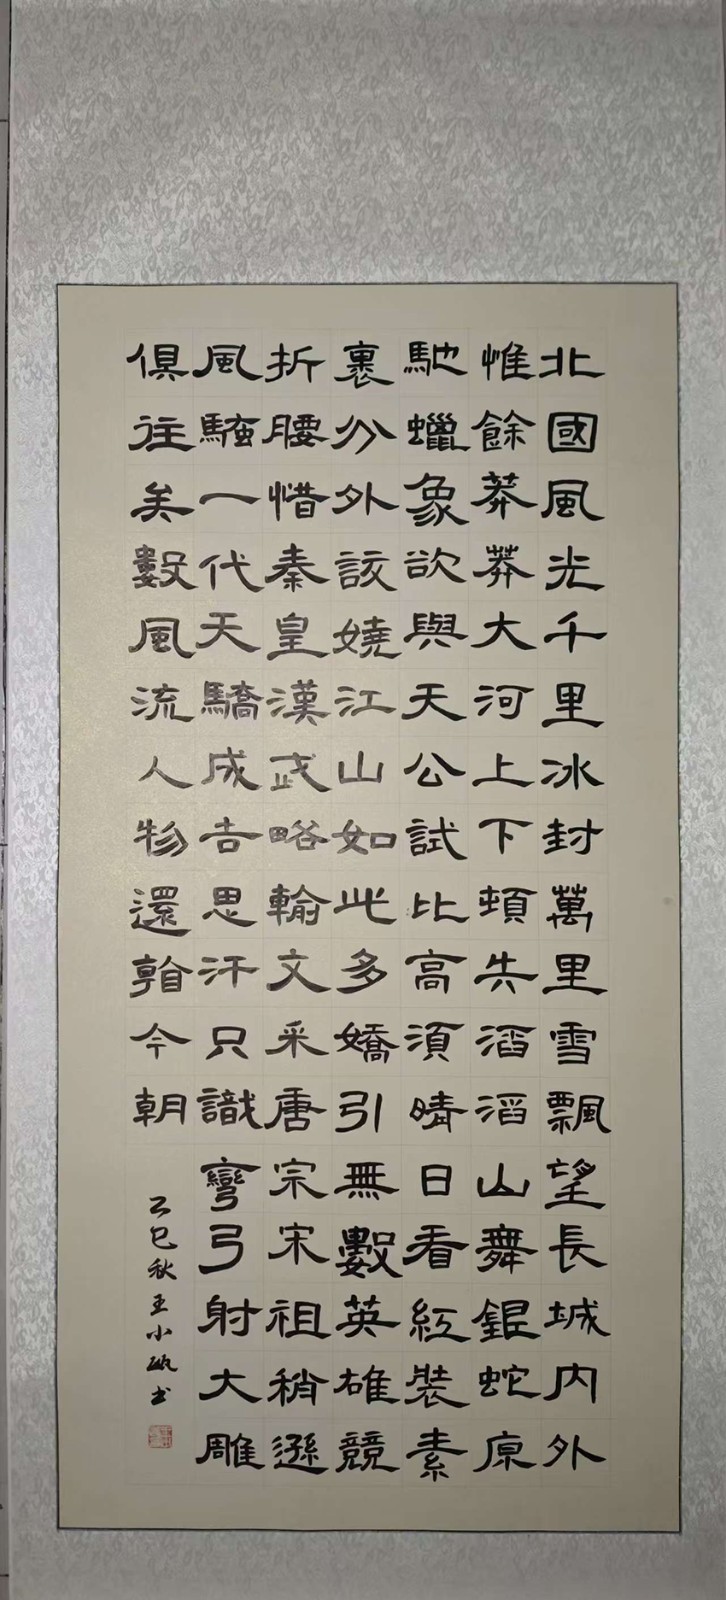 北國風光千里冰封萬里雪飄望長城内外
惟餘莽莽大河上下頓失滔滔山舞銀蛇原
馳蠟象欲與天公試比高須晴日看紅裝素
裹分外該嬈江山如此多嬌引無數英雄競
折腰惜秦皇漢武略輸文采唐宗宋祖稍遜
風騷一代天驕成吉思汗只識彎弓射大雕
俱往矣數風流人物還看今朝
乙巳秋王小書